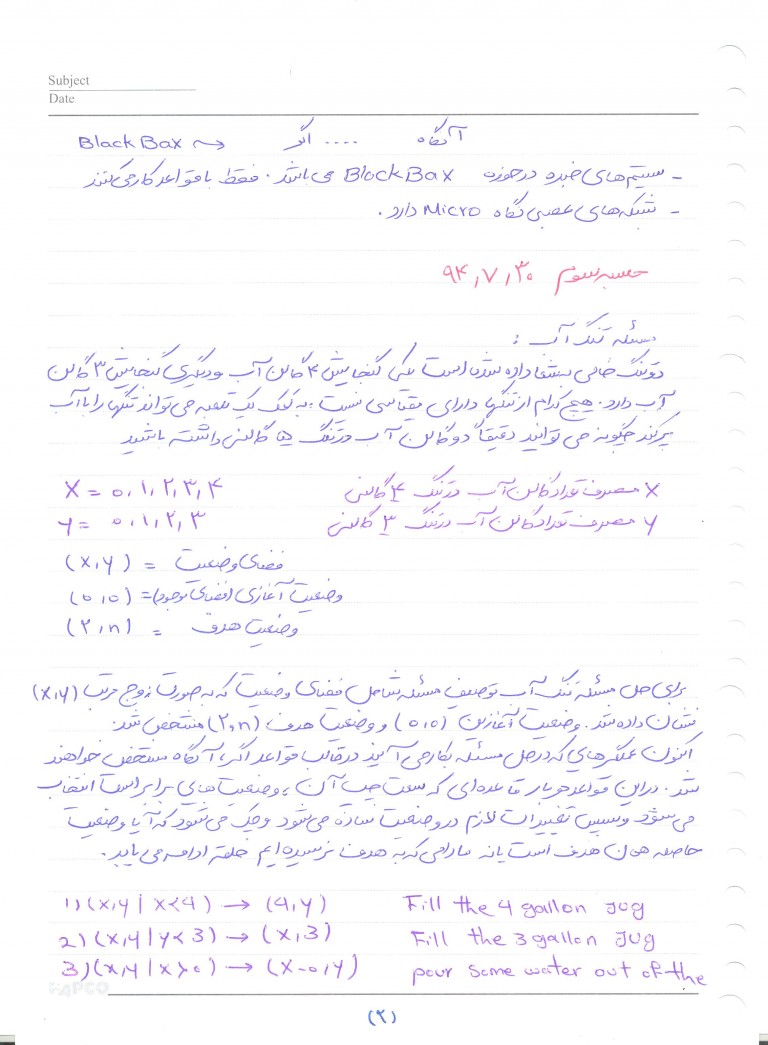 Subject
Date
آنگاه .... اگر ⇝ Black Bax
- سیستم‌های خبره در حوزه Black Bax می باشد. فقط با قواعد کار می‌کنند
- شبکه‌های عصبی نگاه Micro دارد.
جلسه سوم ۹۴,۷,۳۰
مسئله تنگ آب :
دو تنگ خالی به شما داده شده است یکی گنجایش ۴ گالن آب و دیگری گنجایش ۳ گالن
آب دارد. هیچ کدام از تنگها دارای مقیاسی نیست. به کمک یک تلمبه می‌تواند تنگها را با آب
پر کند چگونه می توانید دقیقاً دو گالن آب در تنگ گالنی داشته باشید
X معرف تعداد گالن آب در تنگ ۴ گالنی X = ۰,۱,۲,۳,۴
Y معرف تعداد گالن آب در تنگ ۳ گالنی Y = ۰,۱,۲,۳
فضای وضعیت = (X,Y)
وضعیت آغازی (فضای موجود) = (۰,۰)
وضعیت هدف = (۲,n)
برای حل مسئله تنگ آب توصیف مسئله شامل فضای وضعیت که به صورت زوج مرتب (X,Y)
نشان داده شد. وضعیت آغازین (۰,۰) و وضعیت هدف (۲,n) مشخص شد.
اکنون عملگرهایی که در حل مسئله بکار می‌آیند در قالب قواعد اگر، آنگاه مشخص خواهند
شد. در این قواعد هر بار قاعده‌ای که سمت چپ آن با وضعیت‌های برابر است انتخاب
می شود و سپس تغییرات لازم در وضعیت سازه می‌شود و چک می‌شود که آیا وضعیت
حاصله همان هدف است یا نه مادامی که به هدف نرسیده ایم حلقه ادامه می یابد.
1) (x,y | x<4) → (4,y) Fill the 4 gallon Jug
2) (x,y | y<3) → (x,3) Fill the 3 gallon Jug
3) (x,y | x>0) → (x-0,y) pour some water out of the
PAPCO
(۲)